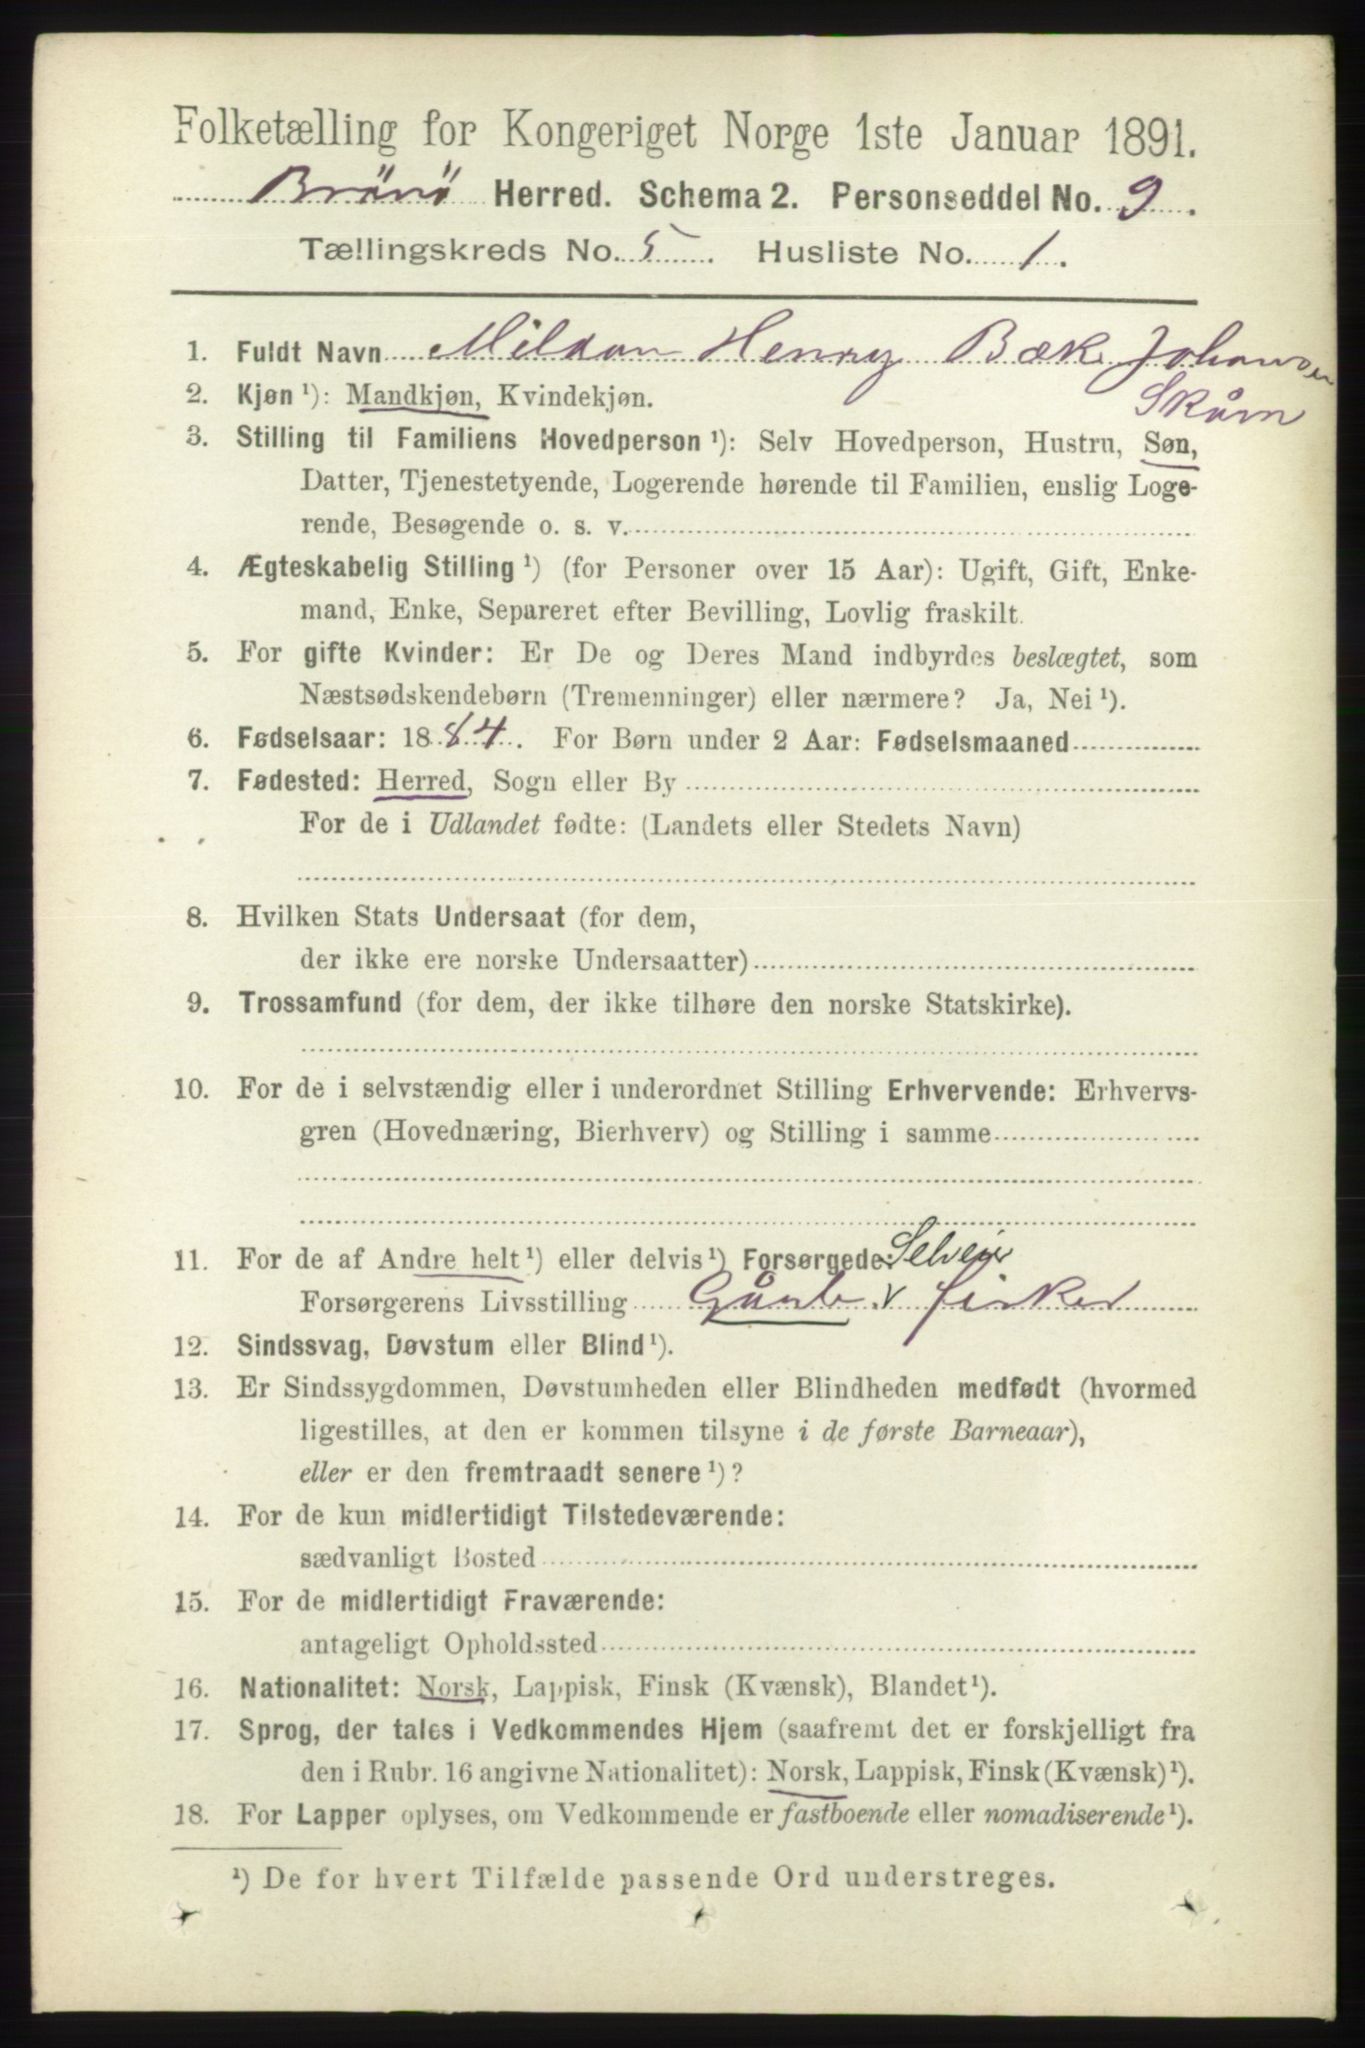 Folketælling for Kongeriget Norge 1ste Januar 1891.
Brönö Herred. Schema 2. Personseddel No. 9.
Tællingskreds No. 5. Husliste No. 1.
1. Fuldt Navn Mildan Henry Bæk Johansen
Skårn
2. Kjøn ¹): Mandkjøn, Kvindekjøn.
3. Stilling til Familiens Hovedperson ¹): Selv Hovedperson, Hustru, Søn,
Datter, Tjenestetyende, Logerende hørende til Familien, enslig Loge-
rende, Besøgende o. s. v.
4. Ægteskabelig Stilling ¹) (for Personer over 15 Aar): Ugift, Gift, Enke-
mand, Enke, Separeret efter Bevilling, Lovlig fraskilt.
5. For gifte Kvinder: Er De og Deres Mand indbyrdes beslægtet, som
Næstsødskendebørn (Tremenninger) eller nærmere? Ja, Nei ¹).
6. Fødselsaar: 1884. For Børn under 2 Aar: Fødselsmaaned
7. Fødested: Herred, Sogn eller By
For de i Udlandet fødte: (Landets eller Stedets Navn)
8. Hvilken Stats Undersaat (for dem,
der ikke ere norske Undersaatter)
9. Trossamfund (for dem, der ikke tilhøre den norske Statskirke).
10. For de i selvstændig eller i underordnet Stilling Erhvervende: Erhvervs-
gren (Hovednæring, Bierhverv) og Stilling i samme
11. For de af Andre helt ¹) eller delvis ¹) Forsørgede: Selveier
Forsørgerens Livsstilling Gåurb. v fisker
12. Sindssvag, Døvstum eller Blind ¹).
13. Er Sindssygdommen, Døvstumheden eller Blindheden medfødt (hvormed
ligestilles, at den er kommen tilsyne i de første Barneaar),
eller er den fremtraadt senere ¹)?
14. For de kun midlertidigt Tilstedeværende:
sædvanligt Bosted
15. For de midlertidigt Fraværende:
antageligt Opholdssted
16. Nationalitet: Norsk, Lappisk, Finsk (Kvænsk), Blandet ¹).
17. Sprog, der tales i Vedkommendes Hjem (saafremt det er forskjelligt fra
den i Rubr. 16 angivne Nationalitet): Norsk, Lappisk, Finsk (Kvænsk) ¹).
18. For Lapper oplyses, om Vedkommende er fastboende eller nomadiserende ¹).
¹) De for hvert Tilfælde passende Ord understreges.